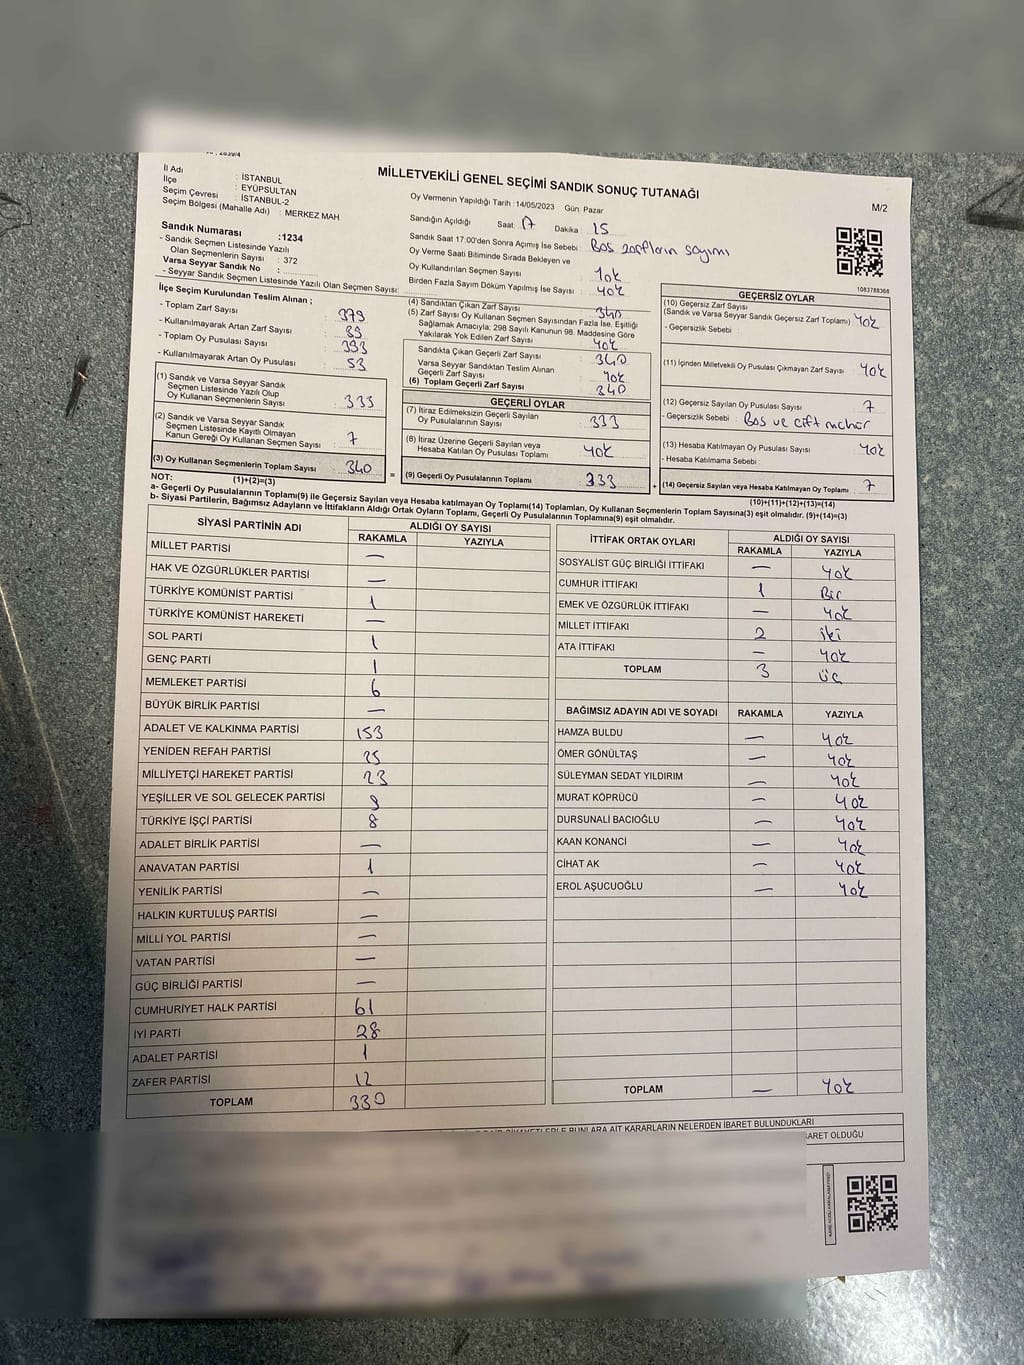 MİLLETVEKİLİ GENEL SEÇİMİ SANDIK SONUÇ TUTANAĞI
M/2
İl Adı : İSTANBUL
İlçe : EYÜPSULTAN
Seçim Çevresi : İSTANBUL-2
Seçim Bölgesi (Mahalle Adı) : MERKEZ MAH
Sandık Numarası :1234
- Sandık Seçmen Listesinde Yazılı
Olan Seçmenlerin Sayısı : 372
Varsa Seyyar Sandık No :
- Seyyar Sandık Seçmen Listesinde Yazılı Olan Seçmen Sayısı:
Oy Vermenin Yapıldığı Tarih :14/05/2023 Gün: Pazar
Sandığın Açıldığı Saat: 17 Dakika : 15
Sandık Saat 17.00'den Sonra Açılmış İse Sebebi : Boş zarfların sayımı
Oy Verme Saati Bitiminde Sırada Bekleyen ve
Oy Kullandırılan Seçmen Sayısı : Yok
Birden Fazla Sayım Döküm Yapılmış İse Sayısı : Yok
1083788366
İlçe Seçim Kurulundan Teslim Alınan ;
- Toplam Zarf Sayısı : 379
- Kullanılmayarak Artan Zarf Sayısı : 39
- Toplam Oy Pusulası Sayısı : 393
- Kullanılmayarak Artan Oy Pusulası : 53
(1) Sandık ve Varsa Seyyar Sandık
Seçmen Listesinde Yazılı Olup
Oy Kullanan Seçmenlerin Sayısı : 333
(2) Sandık ve Varsa Seyyar Sandık
Seçmen Listesinde Kayıtlı Olmayan
Kanun Gereği Oy Kullanan Seçmen Sayısı : 7
(3) Oy Kullanan Seçmenlerin Toplam Sayısı : 340
(1)+(2)=(3)
(4) Sandıktan Çıkan Zarf Sayısı : 340
(5) Zarf Sayısı Oy Kullanan Seçmen Sayısından Fazla İse, Eşitliği
Sağlamak Amacıyla; 298 Sayılı Kanunun 98. Maddesine Göre
Yakılarak Yok Edilen Zarf Sayısı : Yok
Sandıkta Çıkan Geçerli Zarf Sayısı : 340
Varsa Seyyar Sandıktan Teslim Alınan
Geçerli Zarf Sayısı : Yok
(6) Toplam Geçerli Zarf Sayısı : 340
GEÇERLİ OYLAR
(7) İtiraz Edilmeksizin Geçerli Sayılan
Oy Pusulalarının Sayısı : 333
(8) İtiraz Üzerine Geçerli Sayılan veya
Hesaba Katılan Oy Pusulası Toplamı : Yok
= (9) Geçerli Oy Pusulalarının Toplamı : 333
GEÇERSİZ OYLAR
(10) Geçersiz Zarf Sayısı
(Sandık ve Varsa Seyyar Sandık Geçersiz Zarf Toplamı) : Yok
- Geçersizlik Sebebi :
(11) İçinden Milletvekili Oy Pusulası Çıkmayan Zarf Sayısı : Yok
(12) Geçersiz Sayılan Oy Pusulası Sayısı : 7
- Geçersizlik Sebebi : Boş ve çift mühür
(13) Hesaba Katılmayan Oy Pusulası Sayısı : Yok
- Hesaba Katılmama Sebebi :
+ (14) Geçersiz Sayılan veya Hesaba Katılmayan Oy Toplamı : 7
(10)+(11)+(12)+(13)=(14)
NOT:
a- Geçerli Oy Pusulalarının Toplamı(9) ile Geçersiz Sayılan veya Hesaba katılmayan Oy Toplamı(14) Toplamları, Oy Kullanan Seçmenlerin Toplam Sayısına(3) eşit olmalıdır. (9)+(14)=(3)
b- Siyasi Partilerin, Bağımsız Adayların ve İttifakların Aldığı Ortak Oyların Toplamı, Geçerli Oy Pusulalarının Toplamına(9) eşit olmalıdır.
SİYASİ PARTİNİN ADI ALDIĞI OY SAYISI
RAKAMLA YAZIYLA
MİLLET PARTİSİ —
HAK VE ÖZGÜRLÜKLER PARTİSİ —
TÜRKİYE KOMÜNİST PARTİSİ 1
TÜRKİYE KOMÜNİST HAREKETİ —
SOL PARTİ 1
GENÇ PARTİ 1
MEMLEKET PARTİSİ 6
BÜYÜK BİRLİK PARTİSİ —
ADALET VE KALKINMA PARTİSİ 153
YENİDEN REFAH PARTİSİ 25
MİLLİYETÇİ HAREKET PARTİSİ 23
YEŞİLLER VE SOL GELECEK PARTİSİ 9
TÜRKİYE İŞÇİ PARTİSİ 8
ADALET BİRLİK PARTİSİ —
ANAVATAN PARTİSİ 1
YENİLİK PARTİSİ —
HALKIN KURTULUŞ PARTİSİ —
MİLLİ YOL PARTİSİ —
VATAN PARTİSİ —
GÜÇ BİRLİĞİ PARTİSİ —
CUMHURİYET HALK PARTİSİ 61
İYİ PARTİ 28
ADALET PARTİSİ 1
ZAFER PARTİSİ 12
TOPLAM 330
İTTİFAK ORTAK OYLARI ALDIĞI OY SAYISI
RAKAMLA YAZIYLA
SOSYALİST GÜÇ BİRLİĞİ İTTİFAKI — Yok
CUMHUR İTTİFAKI 1 Bir
EMEK VE ÖZGÜRLÜK İTTİFAKI — Yok
MİLLET İTTİFAKI 2 iki
ATA İTTİFAKI — Yok
TOPLAM 3 üç
BAĞIMSIZ ADAYIN ADI VE SOYADI RAKAMLA YAZIYLA
HAMZA BULDU — Yok
ÖMER GÖNÜLTAŞ — Yok
SÜLEYMAN SEDAT YILDIRIM — Yok
MURAT KÖPRÜCÜ — Yok
DURSUNALİ BACIOĞLU — Yok
KAAN KONANCİ — Yok
CİHAT AK — Yok
EROL AŞUCUOĞLU — Yok
TOPLAM — Yok
BUNLARA AİT KARARLARIN NELERDEN İBARET BULUNDUKLARI
OLDUĞU